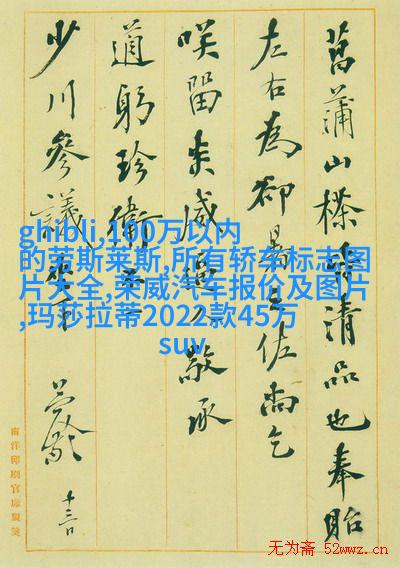 菖蒲山楂皆清品也奉貽
左右為卻暑之佐尚乞
咲留 敬承
適躬珍衛
少川參議
十三日
南洋印刷官廠製箋
ghibli,100万以内
的劳斯莱斯,所有轿车标志图
片大全,荣威汽车报价及图片
,玛莎拉蒂2022款45万
suv
无为斋 52wwz.cn